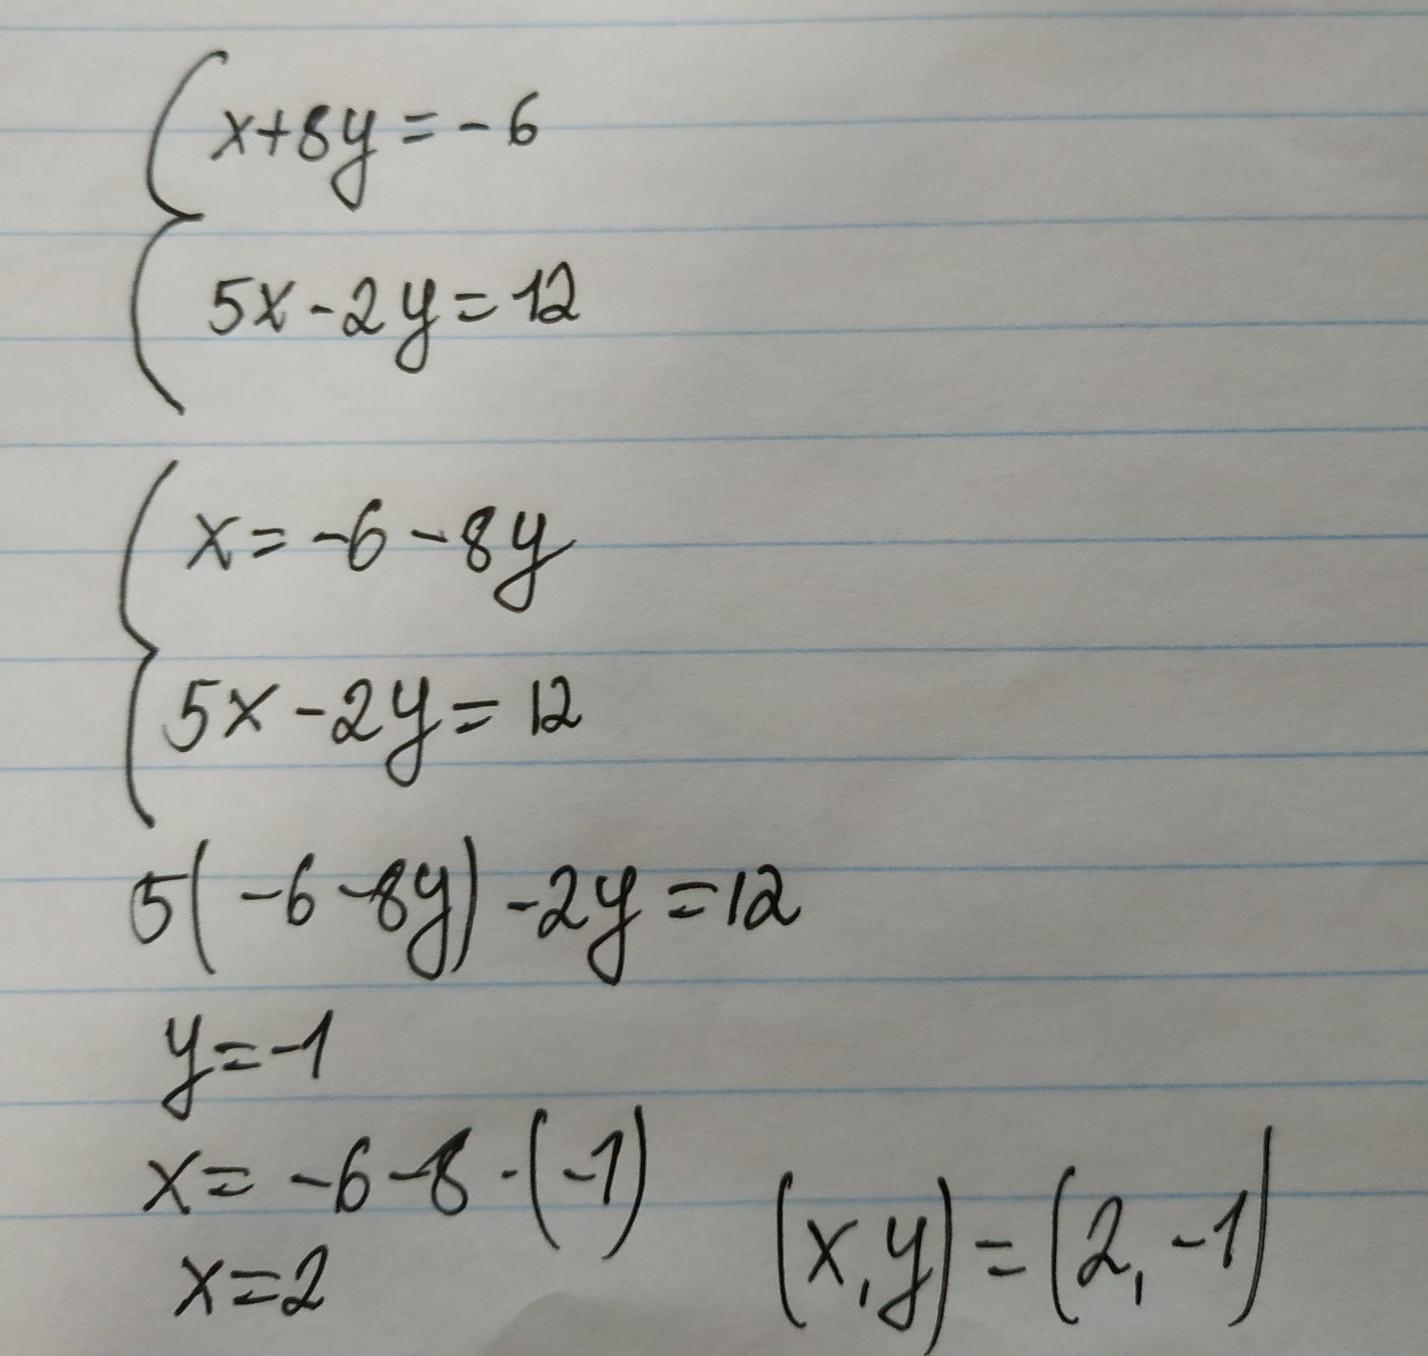 x+8y=-6
5x-2y=12
x=-6-8y
5x-2y=12
5(-6-8y)-2y=12
y=-1
x=-6-8·(-1)
x=2
(x,y)=(2,-1)